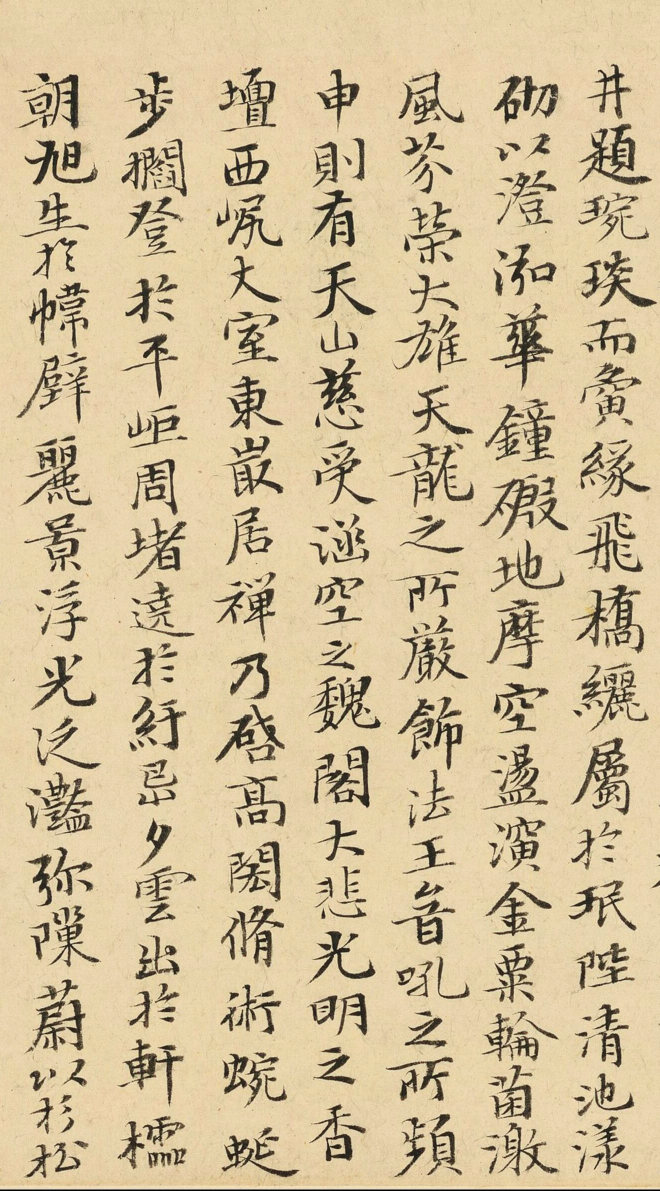 井題琬琰而夤緣飛橋纚屬於珉陛清池漾
砌以澄泓華鐘礟地摩空盪濱金粟輪菌激
風芬榮大雄天龍之所嚴飾法王音吼之所頻
申則有天山慈受涵空之魏閣大悲光明之香
壇西㞦大室東巌居禪乃啓高閎脩術蜿蜒
步櫩登於平岠周堵遶於紆岊夕雲出於軒櫺
朝旭生於幃壁麗景浮光泛灩弥隟蔚以杉松